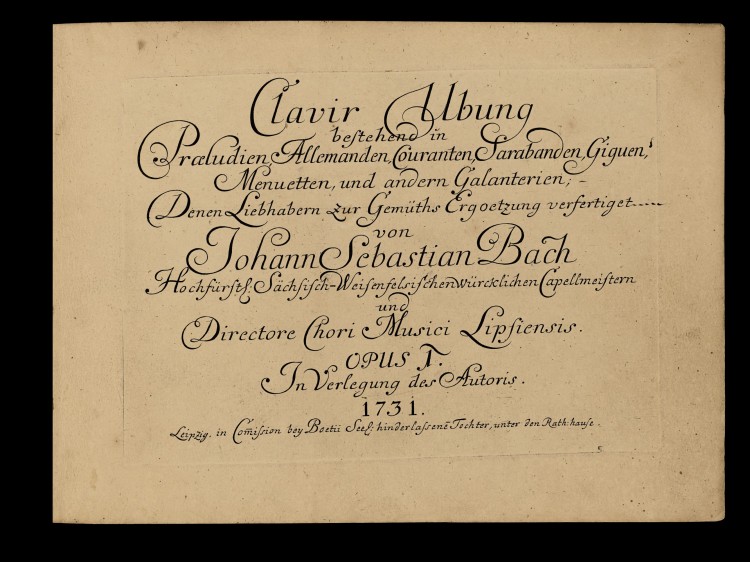 Clavir Ubung
bestehend in
Præludien, Allemanden, Couranten, Sarabanden, Giguen,
Menuetten, und andern Galanterien;
Denen Liebhabern zur Gemüths Ergoetzung verfertiget
von
Johann Sebastian Bach
Hochfürstl: Sächsisch-Weisenfelsischen würcklichen Capellmeistern
und
Directore Chori Musici Lipsiensis.
OPUS 1.
In Verlegung des Autoris.
1731.
Leipzig, in Com̄ission bey Boetii Seel: hinderlassenē Tochter, unter den Rath-hause.